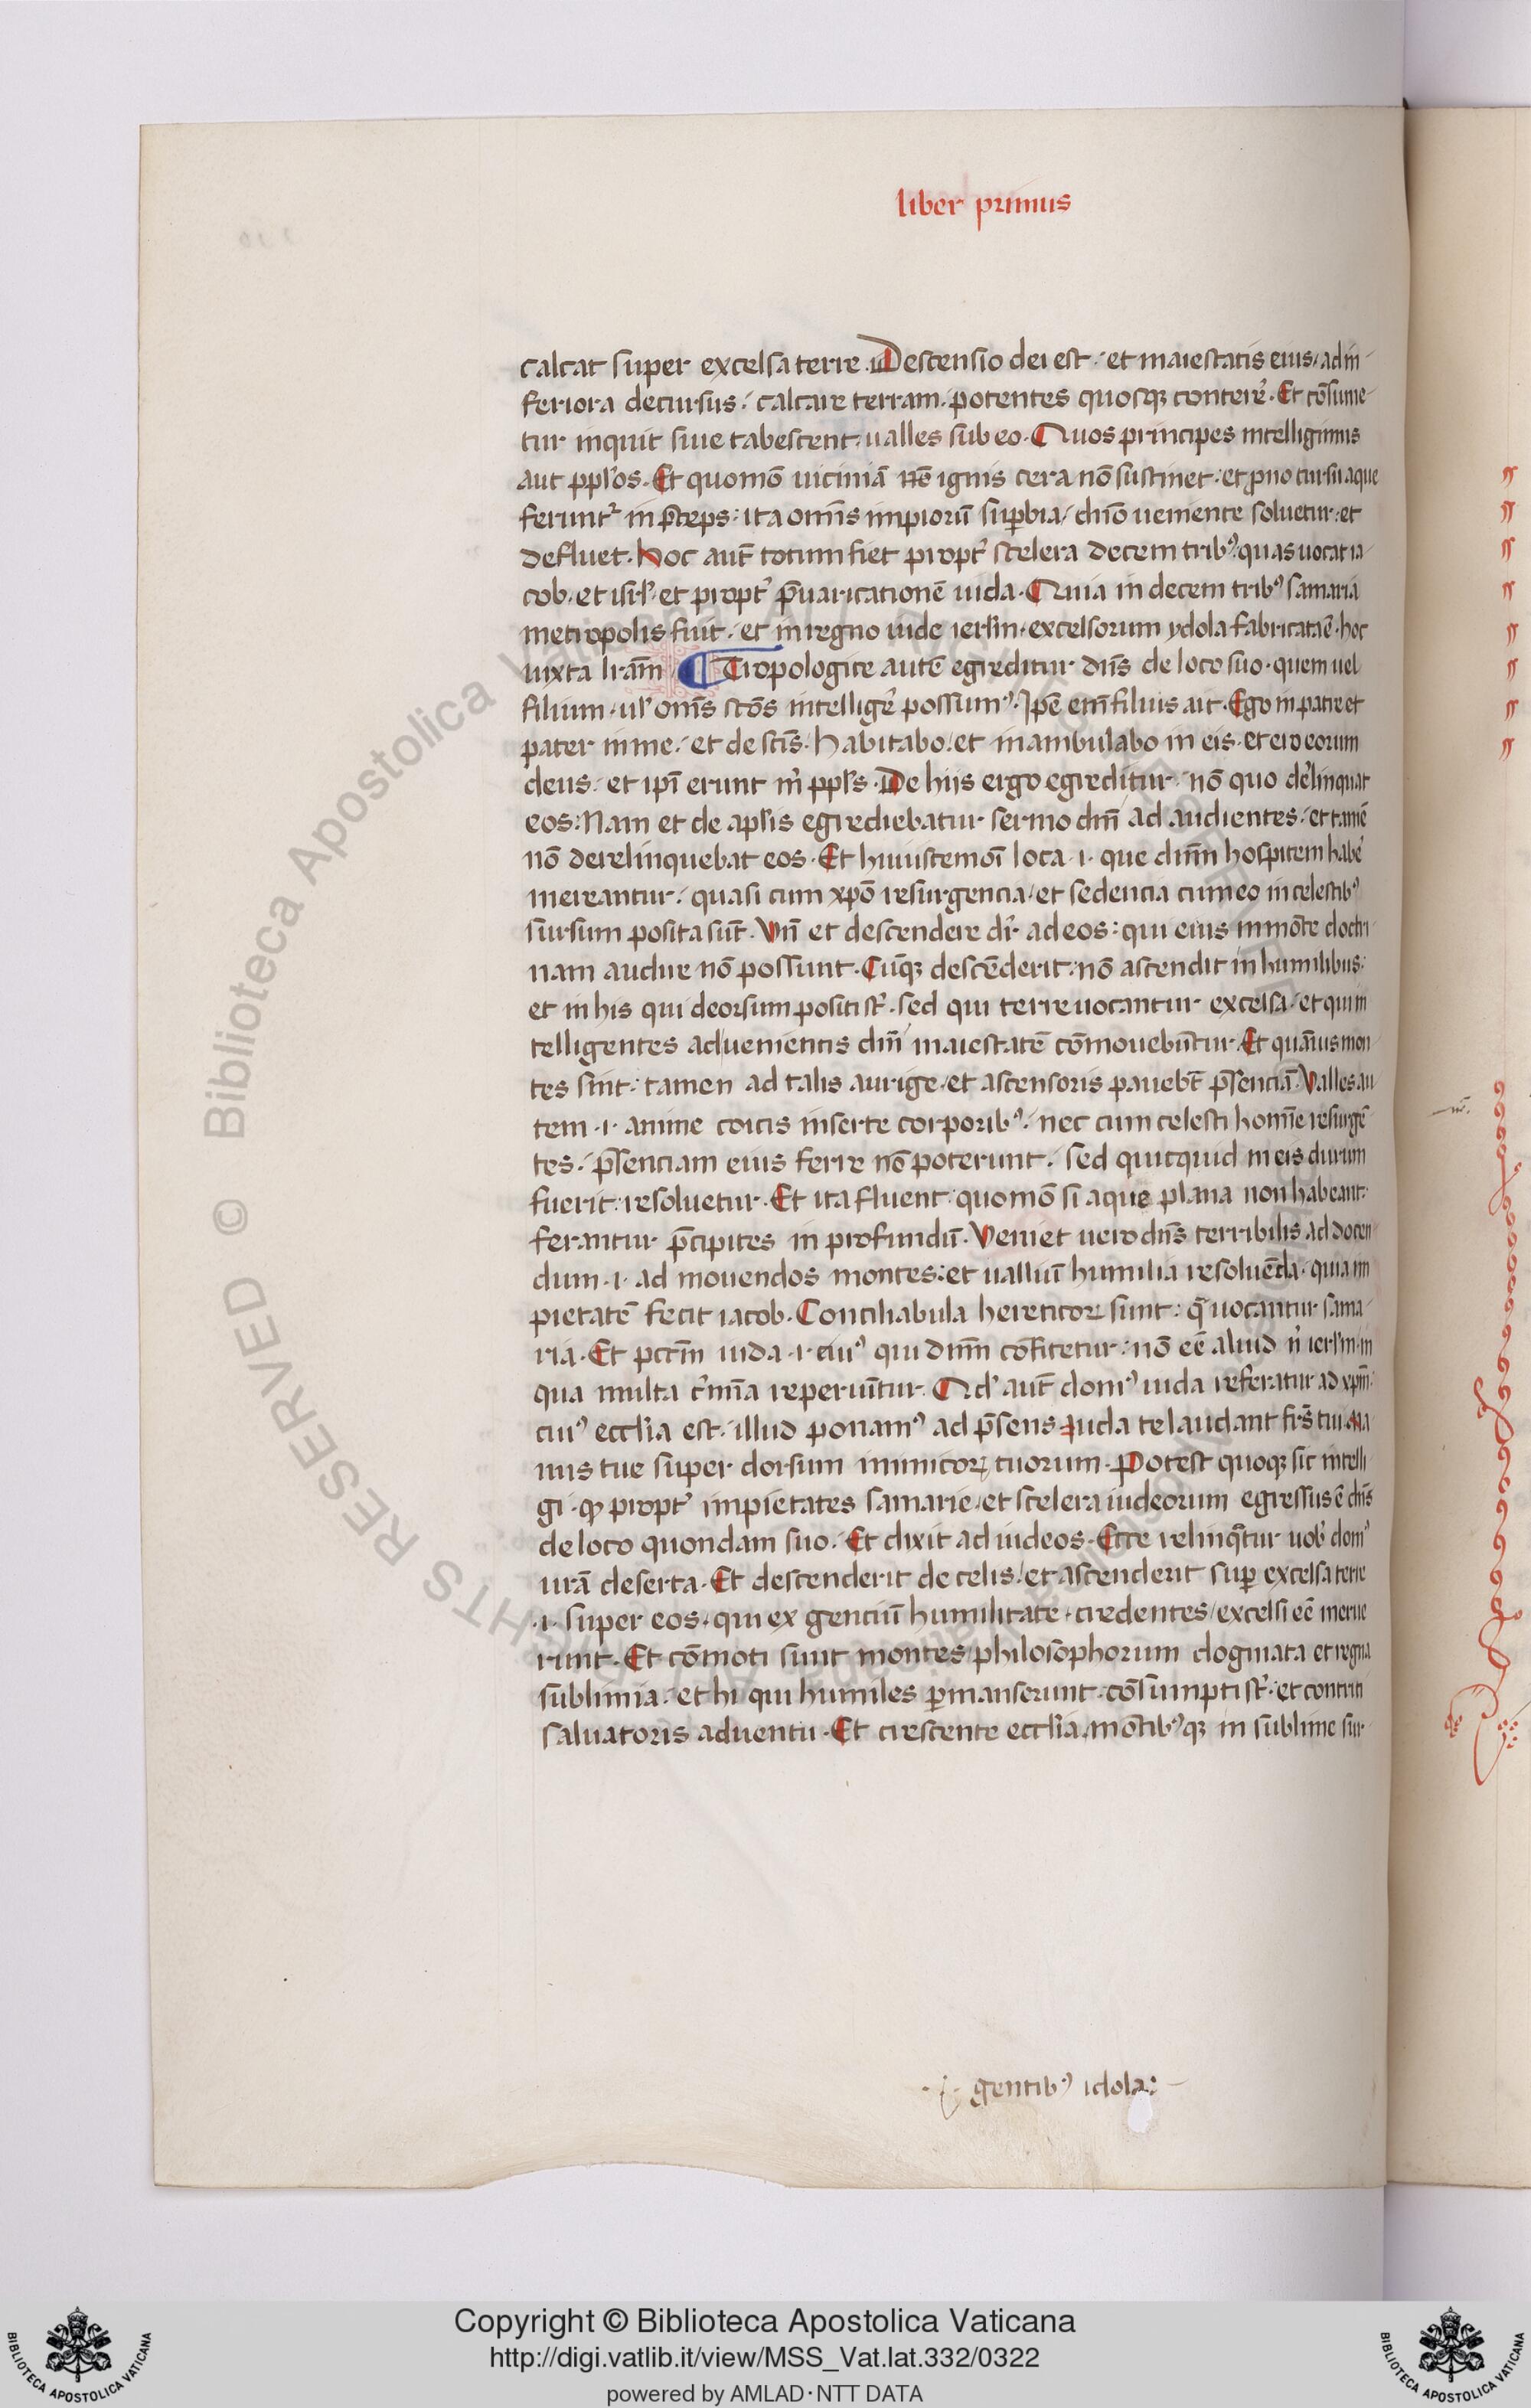 liber primus
calcat super excelsa terre. Descensio dei est. et maiestatis eius / ad in-
feriora decursus. calcare terram. potentes quosqꝫ conterer̉. Et cōsume-
tur inquit siue tabescent. ualles sub eo. Quos principes intelligimus
aut ppl̓os. Et quomō uiciniā ignis cera nō sustinet. et ꝓno cursu aque
ferunt᷑ in p̄ceps: ita omīs impiorū suꝑbia / dn̄o ueniente soluetur. et
defluet. hoc aut̄ totum fiet propt̉ scelera decem tribꝰ. quas uocat ia-
cob. et isrl̓. et propt̉ p̄uaricationē iuda. Quia in decem tribꝰ samaria
metropolis fuit. et in regno iude ierl̓m. excelsorum ydola fabricata ē. hoc
iuxta l̓rām ¶ Tropologice autē egreditur dn̄s de loco suo. quem uel
filium. ul̓ omīs sc̄os intelliger̉ possumꝰ. Ip̄e eni̅ filius ait. Ego in patre et
pater in me. et de sc̄is. habitabo. et inambulabo in eis. et ero eorum
deus. et ip̄i erunt m̉ ppl̓s. De hiis ergo egreditur. nō quo delinquat
eos: Nam et de apl̓is egrediebatur sermo dn̄i ad audientes. et tamē
nō derelinquebat eos. Et huiuscemōi loca .i. que dn̄m hospitem haber̉
mereantur. quasi cum xp̄o resurgencia / et sedencia cum eo in celestibꝰ
sursum posita sūt. Vn̄ et descendere dr̄ ad eos: qui eius in mōte doctri-
nam audire nō possunt. Cūqꝫ descēderit. nō ascendit in humilibus:
et in his qui deorsum positi st̉. sed qui terre uocantur excelsa. et qui in
telligentes aduenientis dn̄i maiestatē cōmouebūtur. Et quāuis mon-
tes sint: tamen ad talis aurige. et ascensoris pauebt̄ p̄senciā. Valles au
tem .i. anime coicis inserte corporibꝰ. nec cum celesti homīe resurgē
tes. p̄senciam eius ferre nō poterunt. sed quicquid in eis durum
fuerit. resoluetur. Et ita fluent. quomō si aque plana non habeant.
ferantur p̄cipites in profundū. Veniet uero dn̄s terribilis ad docen
dum .i. ad mouendos montes: et ualliū humilia resoluēda. quia im
pietatē fecit iacob. Conciliabula hereticoꝝ sunt: q̄ uocantur sama-
ria. Et pctm̄ iuda .i. eiuꝰ qui dn̄m cōfitetur. nō eē aliud n̉ ierl̓m. in
qua multa c̉mīa reperiūtur. Qd̓ aut̄ domꝰ iuda referatur ad xpm̄.
cuiꝰ eccl̓ia est. illud ponamꝰ ad p̄sens. Juda te laudant fr̄s tui. Ma
nus tue super dorsum inimicoꝝ tuorum. Potest quoqꝫ sic intelli
gi. ꝙ propt̉ impietates samarie. et scelera iudeorum egressus ē dn̄s
de loco quondam suo. Et dixit ad iudeos. Ecce relinq̄tur uob̓ domꝰ
urā deserta. Et descenderit de celis. et ascenderit suꝑ excelsa terre
.i. super eos. qui ex genciū humilitate. credentes / excelsi eē merue
runt. Et cōmoti sunt montes / philosophorum dogmata et regna
sublimia. et hi qui humiles ꝑmanserunt. cōsumpti st̉. et contriti
saluatoris aduentu. Et crescente eccl̓ia. mōtibꝰqꝫ in sublime sur-
gentibꝰ idola:
Copyright © Biblioteca Apostolica Vaticana
http://digi.vatlib.it/view/MSS_Vat.lat.332/0322
powered by AMLAD·NTT DATA